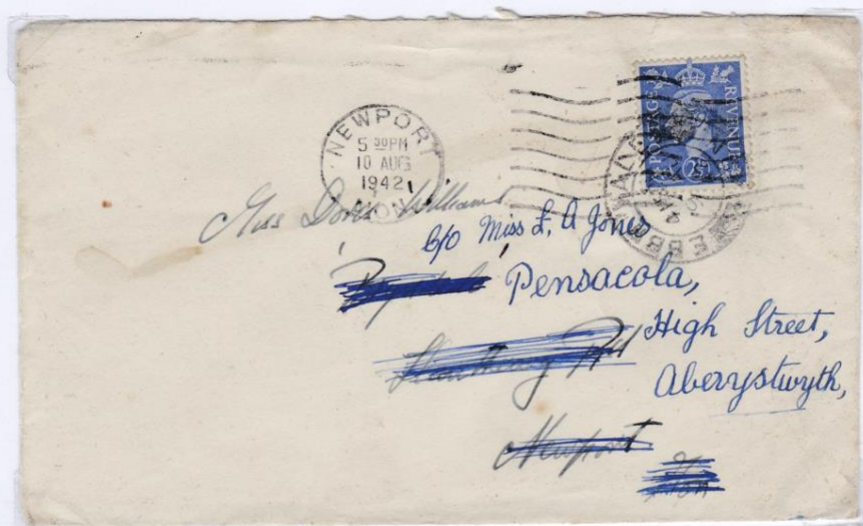 NEWPORT
5 30PM
10 AUG
1942
MON.
POSTAGE REVENUE
2½
Miss Doris Williams
C/o Miss L. A Jones
Pensacola,
High Street,
Aberystwyth,
Newport
Mon